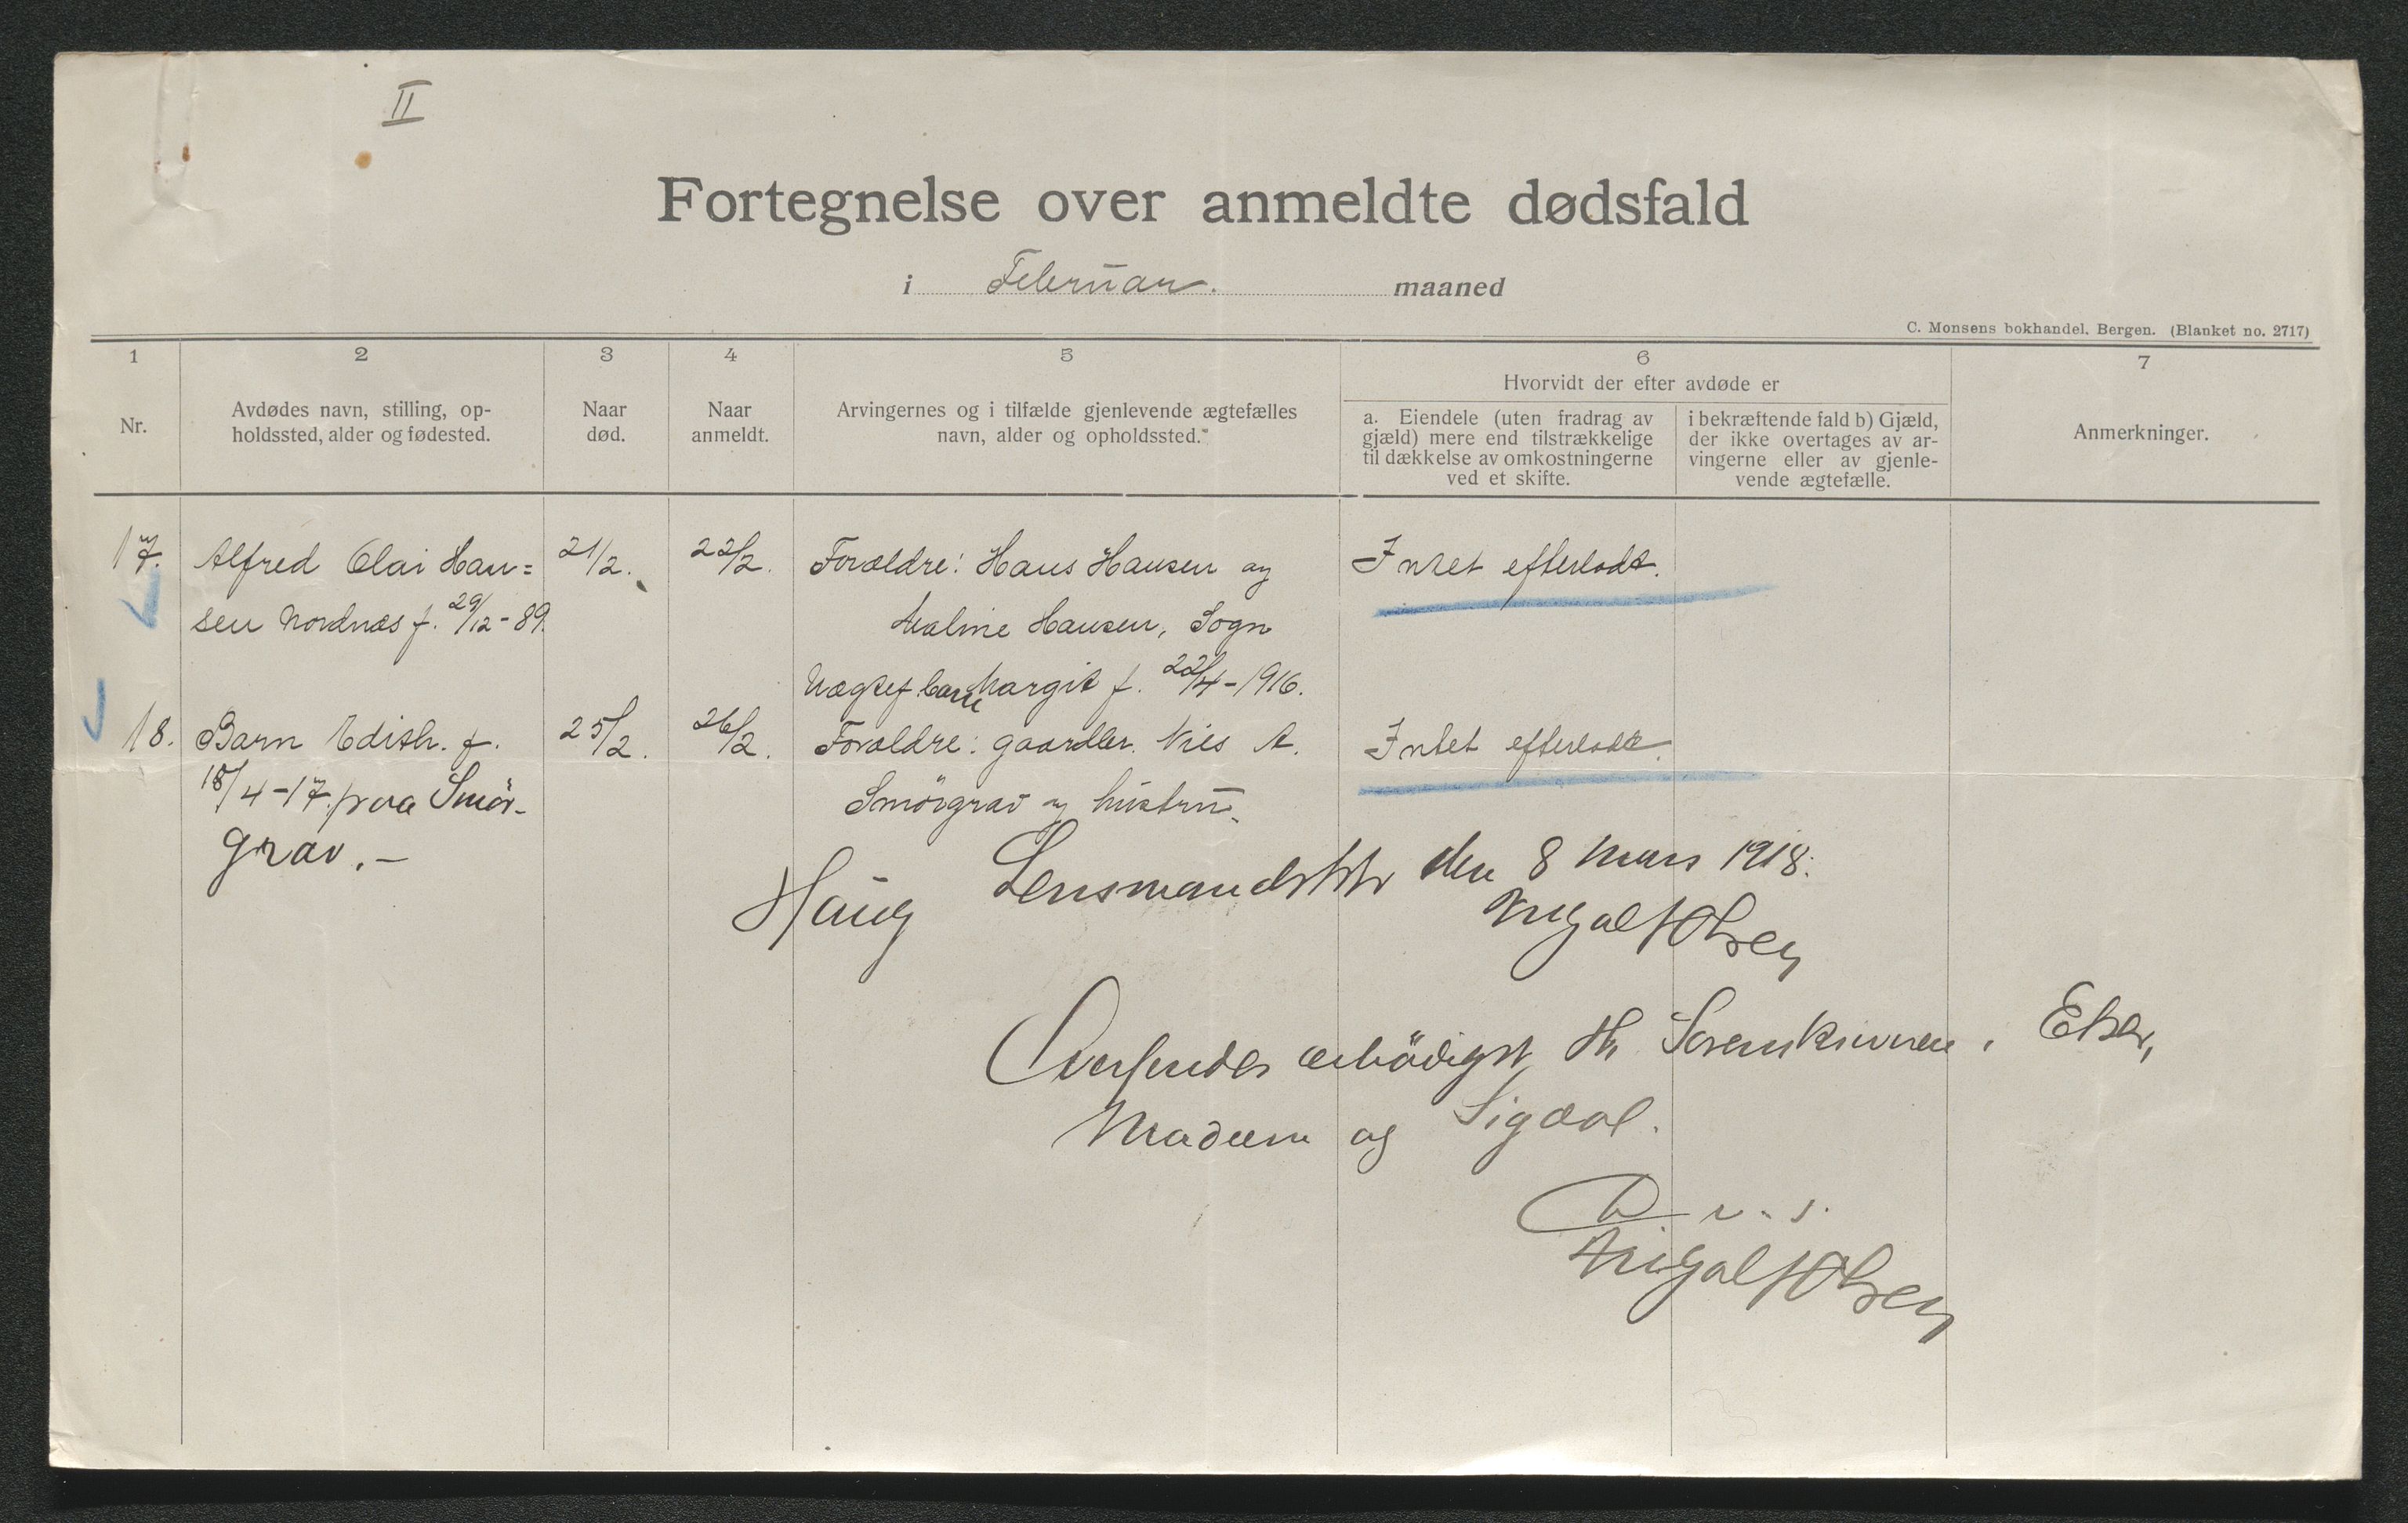 II
Fortegnelse over anmeldte dødsfald
i Februar. maaned
C. Monsens bokhandel, Bergen. (Blanket no. 2717)
1 2 3 4 5 6 7
Nr.
Avdødes navn, stilling, op-
holdssted, alder og fødested.
Naar
død.
Naar
anmeldt.
Arvingernes og i tilfælde gjenlevende ægtefælles
navn, alder og opholdssted.
Hvorvidt der efter avdøde er
a. Eiendele (uten fradrag av
gjæld) mere end tilstrækkelige
til dækkelse av omkostningerne
ved et skifte.
i bekræftende fald b) Gjæld,
der ikke overtages av ar-
vingerne eller av gjenle-
vende ægtefælle.
Anmerkninger.
17. Alfred Olai Han= 21/2. 22/2. Forældre: Hans Hansen og Intet efterladt.
sen Nordnæs f. 29/12-89. Hansen, Sogn
Uægtef. barn Margit f. 22/4-1916.
18. Barn Edith. f. 25/2. 26/2. Forældre: gaardbr. Nils A. Intet efterladt.
18/4-17. paa Smör- Smörgrav og hustru.
grav.-
Haug Lensmandsktr den 8 Mars 1918.
Oversendes ærbödigst til Sorenskriveren i Eker,
Modum og Sigdal.
D. u. s.